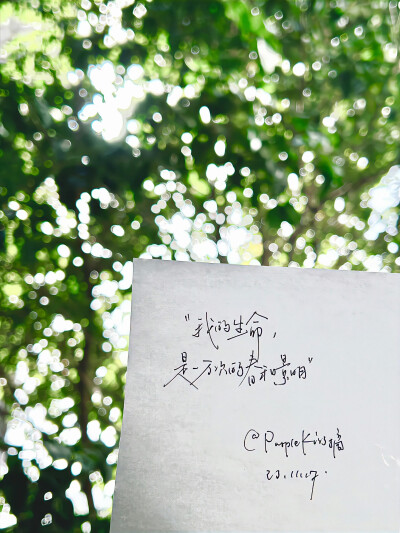 “我的生命,
是一万次的春和景明”
@PurpleKiss摘
23.11.17.